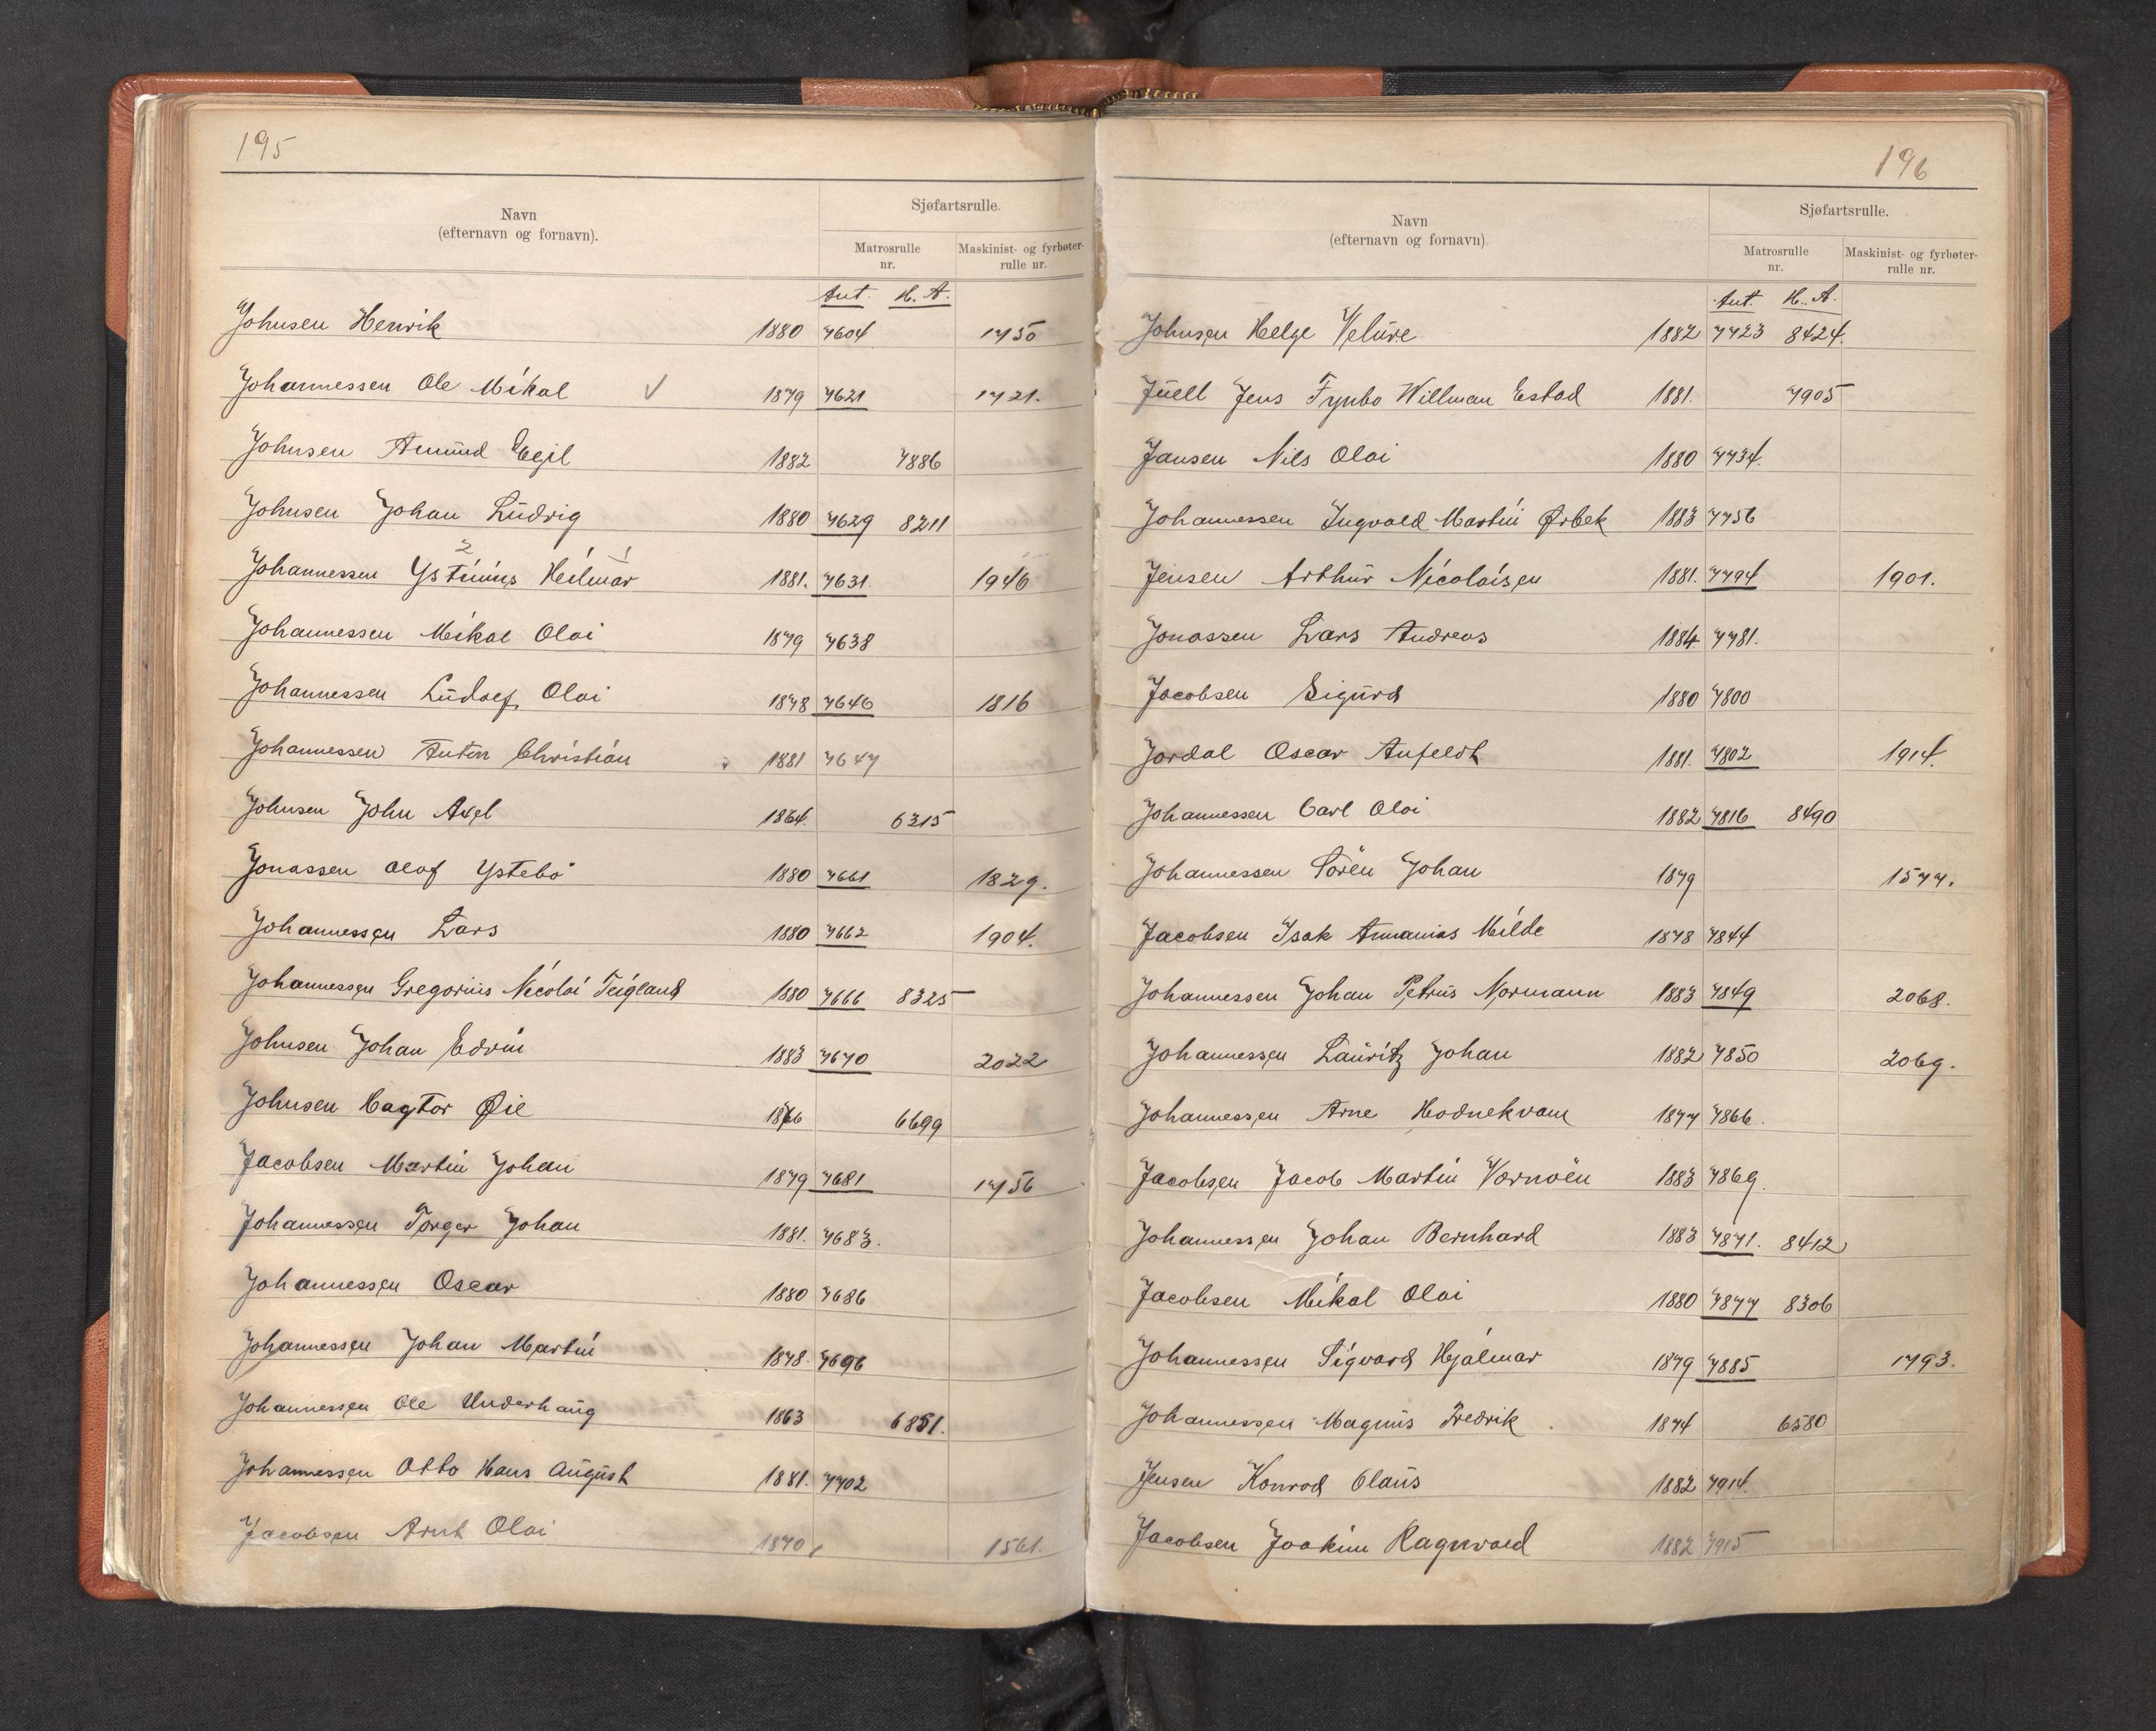 195
Navn
(efternavn og fornavn).
Sjøfartsrulle.
Matrosrulle nr.
Maskinist- og fyrbøter-rulle nr.
Aut. H. A.
Johnsen Henrik 1880 7604 1750
Johannessen Ole Mikal V 1879 7621 1721.
Johnsen Amund Egil 1882 7886
Johnsen Johan Ludvig 1880 7629 8211
2 1
Johannessen Ystinius Heilmar 1881. 7631. 1946
Johannessen Mikal Olai 1879 7638
Johannessen Ludolf Olai 1878 7646 1816
Johannessen Anton Christian 1881 7647
Johnsen John Axel 1864. 6315
Jonassen Olaf Ystebö 1880 7661 1829.
Johannessen Lars 1880 7662 1904.
Johannessen Gregorius Nicolai Teigland 1880 7666 8325
Johnsen Johan Edvin 1883 7670 2022
Johnsen Hagtor Øie 6699
Jacobsen Martin Johan 1879 7681 1756
Johannessen Torger Johan 1881. 7683.
Johannessen Oscar 1880 7686
Johannessen Johan Martin 1878. 7696
Johannessen Ole Underhaug 1863 6851.
Johannessen Otto Hans August 1881. 7702
Jacobsen Arnt Olai 1870 1561.
196
Navn
(efternavn og fornavn)
Sjøfartsrulle.
Matrosrulle nr.
Maskinist- og fyrbøter-rulle nr.
Aut. H. A.
Johnsen Helge Velure 1882 7723 8424.
Juell Jens Fynbo Willman Estad 1881. 7905
Jansen Nils Olai 1880 7734.
Johannessen Ingvald Martin Ørbek 1883 7756
Jensen Arthur Nicolaisen 1881. 7794 1901.
Jonassen Lars Andreas 1884. 7781.
Jacobsen Sigurd 1880 7800
Jordal Oscar Anfeldt 1881. 7802 1914.
Johannessen Carl Olai 1882 7816 8490
Johannessen Sören Johan 1879 1577.
Jacobsen Isak Annanias Milde 1878 7844
Johannessen Johan Petrus Normann 1883 7849 2068.
Johannessen Lauritz Johan 1882 7850 2069.
Johannessen Arne Hodnekvam 1877 7866.
Jacobsen Jacob Martin Værnöen 1883 7869.
Johannessen Johan Bernhard 1883 7871. 8412
Jacobsen Mikal Olai 1880 7877 8306
Johannessen Sigvard Hjalmar 1879 7885 1793.
Johannessen Magnus Fredrik 1874 6580
Jensen Konrad Olaus 1882 7914.
Jacobsen Joakim Ragnvald 1882 7915